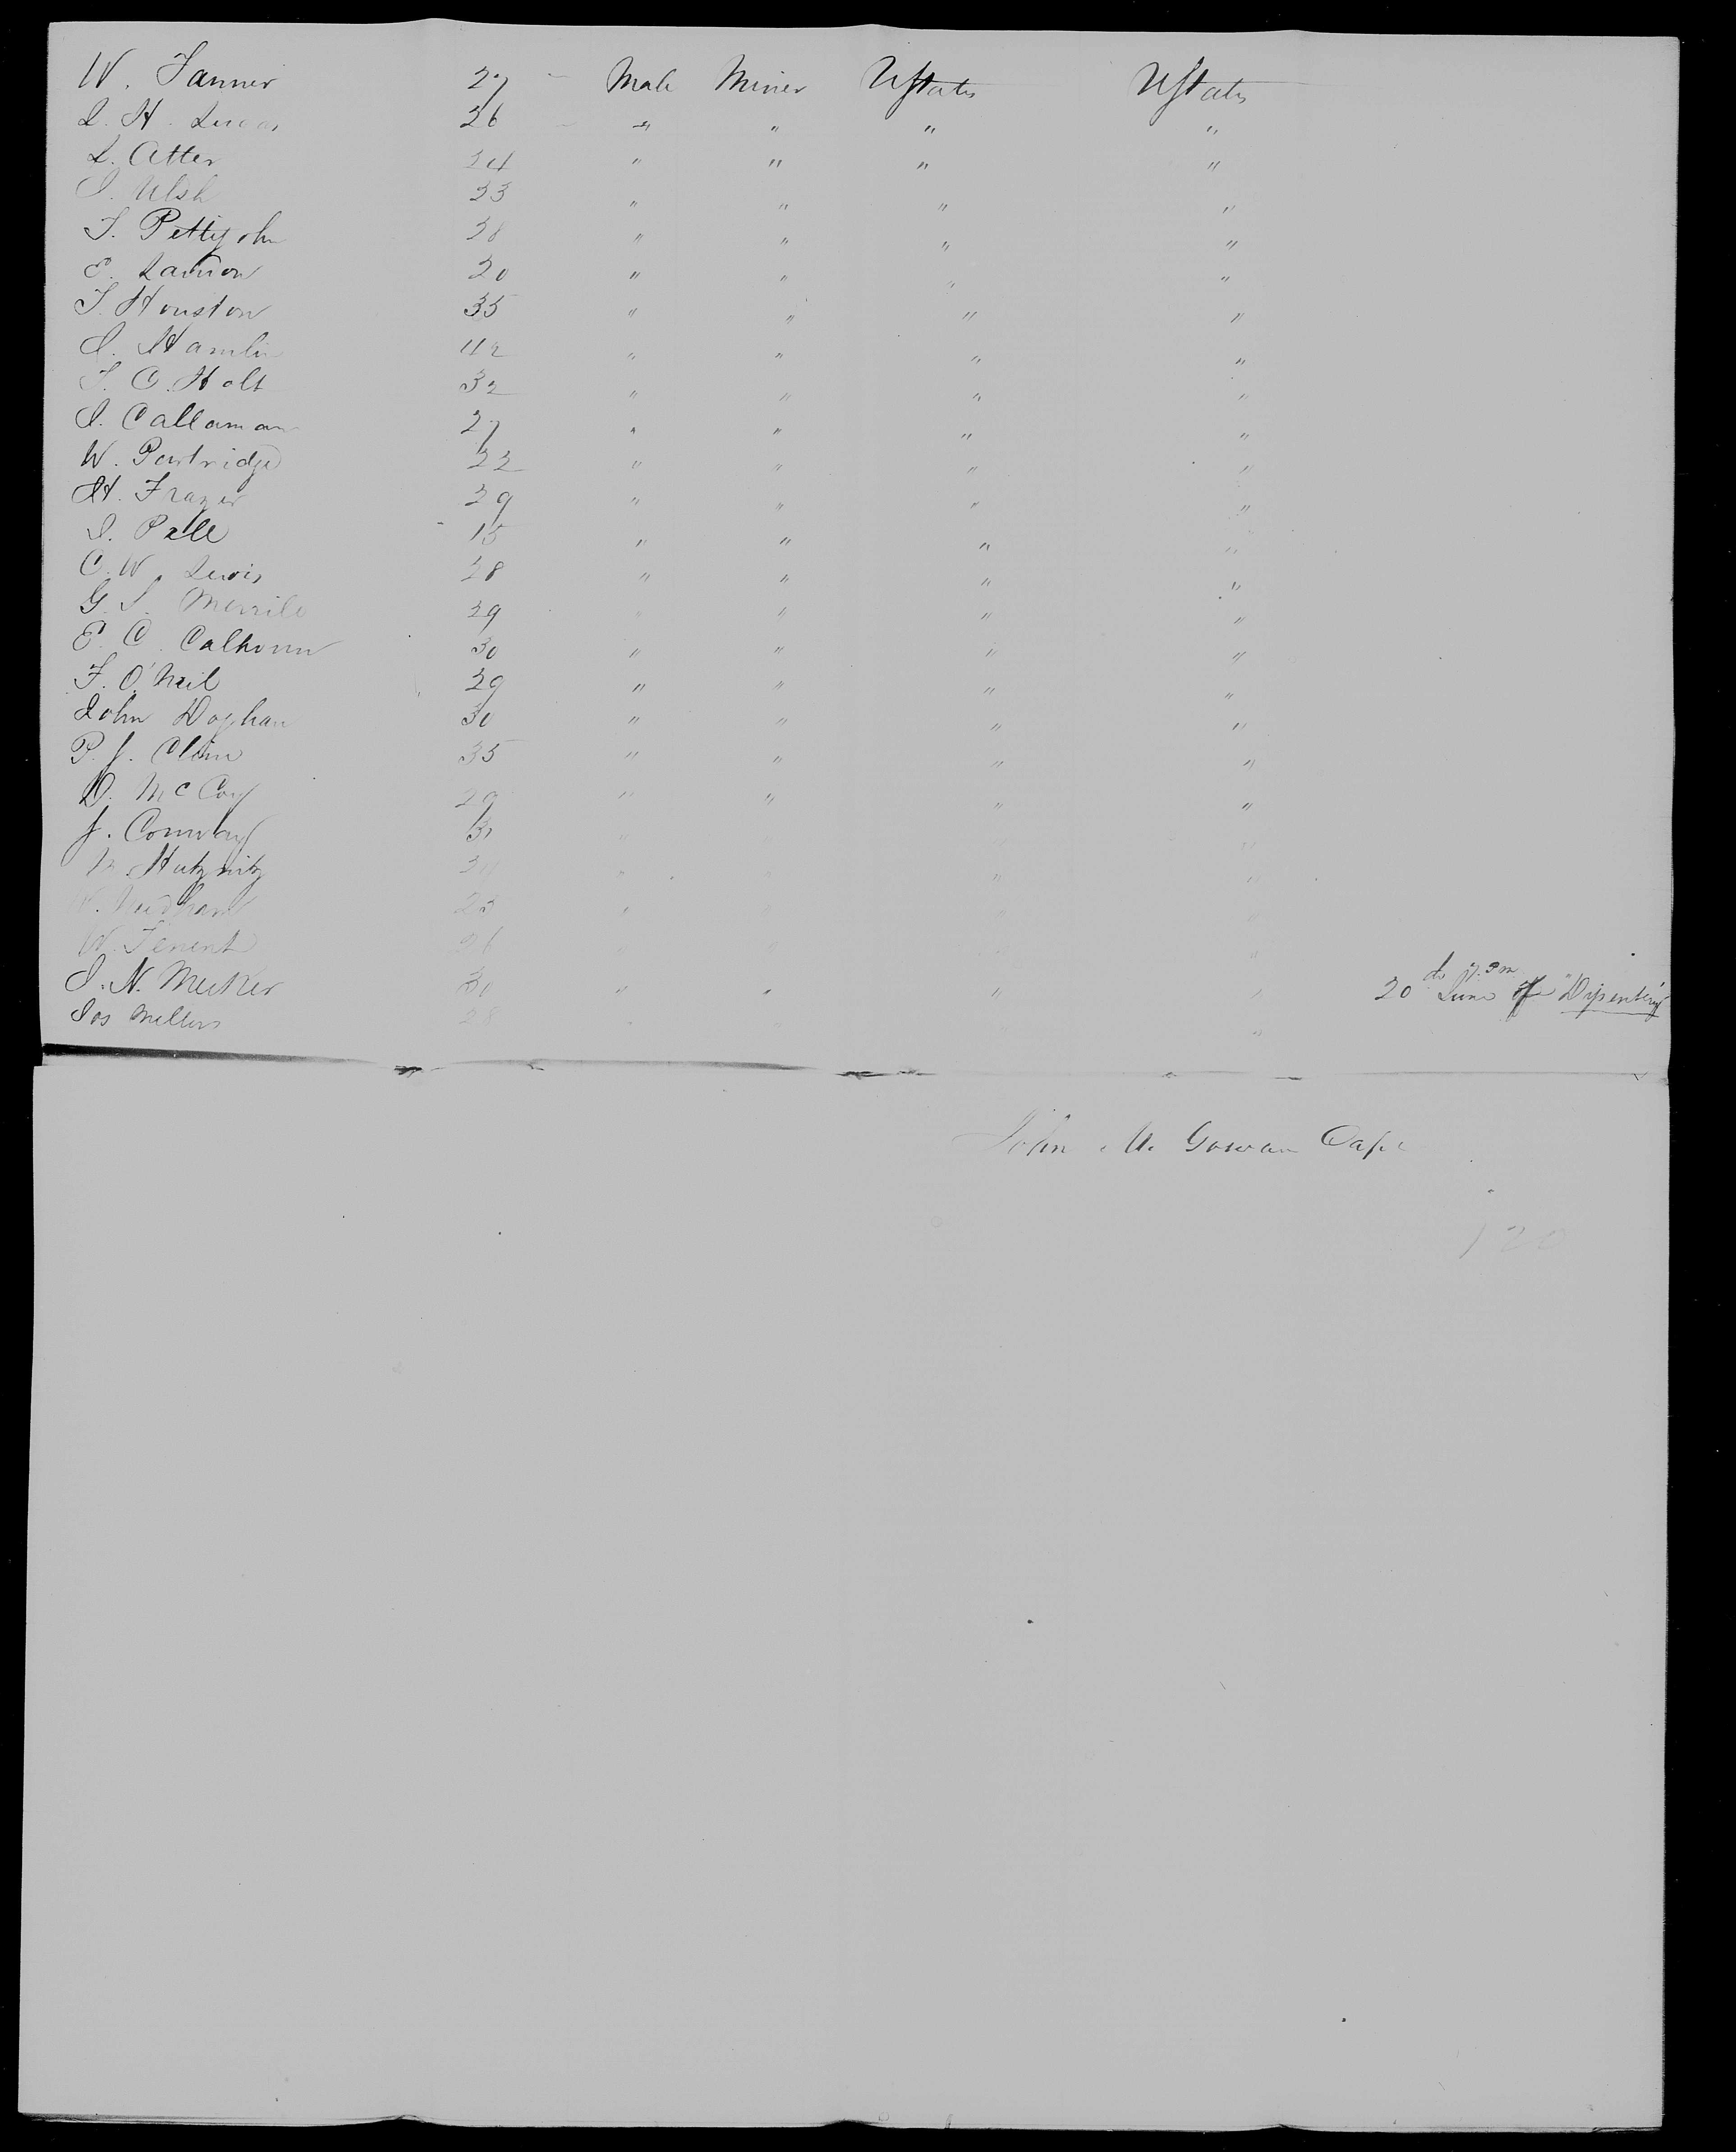 W. Tanner 27 Male Miner UStates UStates
L. H. Lucas 26 " " " "
L. Atter 24 " " " "
J. Ulsh 23 " " " "
T. Pettyjohn 28 " " " "
E. Lamson 20 " " " "
T. Houston 35 " " " "
J. Hamlin 42 " " " "
T. C. Holt 32 " " " "
J. Callaman 27 " " " "
W. Partridge 22 " " " "
H. Frazer 29 " " " "
J. Pell 15 " " " "
C. W. Lewis 28 " " " "
G. S. Merrile 29 " " " "
E. C. Calhoun 30 " " " "
F. O'Neil 29 " " " "
John Doghan 30 " " " "
P. J. Cline 35 " " " "
D. McCoy 29 " " " "
J. Conway 31 " " " "
Hutznitz " " " "
W. Needham 23 " " " "
W. Tenent 26 " " " "
J. N. Meeker 30 " " " " 20 June of "Dysentery"
Jos Millers 28 " " " "
John Mc Gowan Capt
120